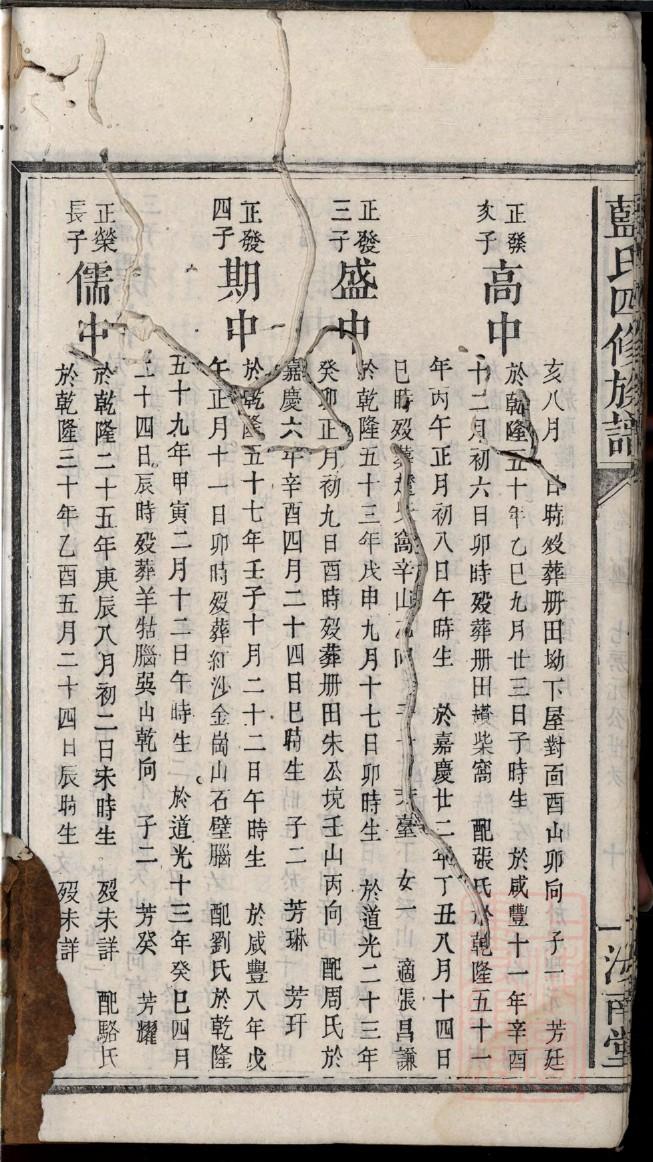 藍氏四修族譜
亥八月 日時歿葬册田坳下屋對面酉山卯向 子一 芳廷
正發
亥子 高中
於乾隆五十年乙巳九月廿三日子時生 於咸豐十一年辛酉
十二月初六日卯時歿葬册田柴窩 配張氏於乾隆五十一
年丙午正月初八日午時生 於嘉慶廿二年丁丑八月十四日
巳時歿葬 窩辛山乙向 芳臺 女一 適張昌謙
正發
三子 盛中
於乾隆五十三年戊申九月十七日卯時生 於道光二十三年
癸卯正月初九日酉時歿葬册田朱公境壬山丙向 配周氏於
嘉慶六年辛酉四月二十四日巳時生 子二 芳琳 芳玕
正發
四子 期中
於乾隆五十七年壬子十月二十二日午時生 於咸豐八年戊
午正月十一日卯時歿葬紅沙金崗山石壁腦 配劉氏於乾隆
五十九年甲寅二月十二日午時生 於道光十三年癸巳四月
二十四日辰時歿葬羊牯腦巽山乾向 子二 芳癸 芳耀
正榮
長子 儒中
於乾隆二十五年庚辰八月初二日未時生 歿未詳 配駱氏
於乾隆三十年乙酉五月二十四日辰時生 歿未詳